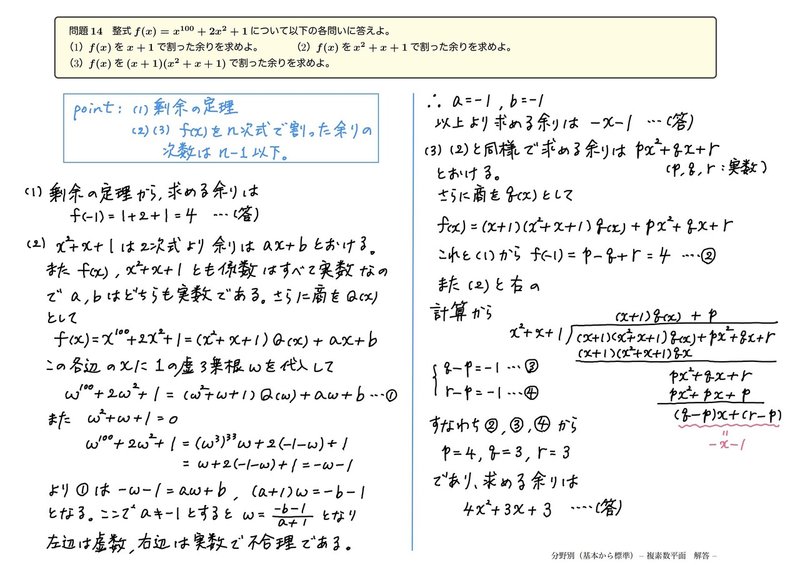 問題14 整式 f(x) = x^100 + 2x^2 + 1 について以下の各問いに答えよ。
(1) f(x) を x + 1 で割った余りを求めよ。 (2) f(x) を x^2 + x + 1 で割った余りを求めよ。
(3) f(x) を (x + 1)(x^2 + x + 1) で割った余りを求めよ。
point: (1) 剰余の定理
(2)(3) f(x)をn次式で割った余りの
次数はn-1以下。
(1) 剰余の定理から、求める余りは
f(-1)=1+2+1=4 …(答)
(2) x^2+x+1は2次式より余りはax+bとおける。
またf(x), x^2+x+1とも係数はすべて実数なの
でa,bはどちらも実数である。さらに商をQ(x)
として
f(x)=x^100+2x^2+1=(x^2+x+1)Q(x)+ax+b
この各辺のxに1の虚3乗根ωを代入して
ω^100+2ω^2+1=(ω^2+ω+1)Q(ω)+aω+b…①
また ω^2+ω+1=0
ω^100+2ω^2+1=(ω^3)^33ω+2(-1-ω)+1
=ω+2(-1-ω)+1=-ω-1
より①は -ω-1=aω+b, (a+1)ω=-b-1
となる。ここでa≠-1とするとω=(-b-1)/(a+1)となり
左辺は虚数、右辺は実数で不合理である。
∴ a=-1, b=-1
以上より求める余りは -x-1 …(答)
(3) (2)と同様で求める余りはpx^2+qx+r
とおける。 (p,q,r:実数)
さらに商をg(x)として
f(x)=(x+1)(x^2+x+1)g(x)+px^2+qx+r
これと(1)から f(-1)=p-q+r=4 …②
また(2)と右の
計算から
(x+1)g(x)+p
x^2+x+1 (x+1)(x^2+x+1)g(x)+px^2+qx+r
(x+1)(x^2+x+1)gx
px^2+qx+r
px^2+px+p
(q-p)x+(r-p)
=
-x-1
{ q-p=-1 …③
r-p=-1 …④
すなわち②,③,④から
p=4, q=3, r=3
であり、求める余りは
4x^2+3x+3 …(答)
分野別（基本から標準） – 複素数平面 解答 –